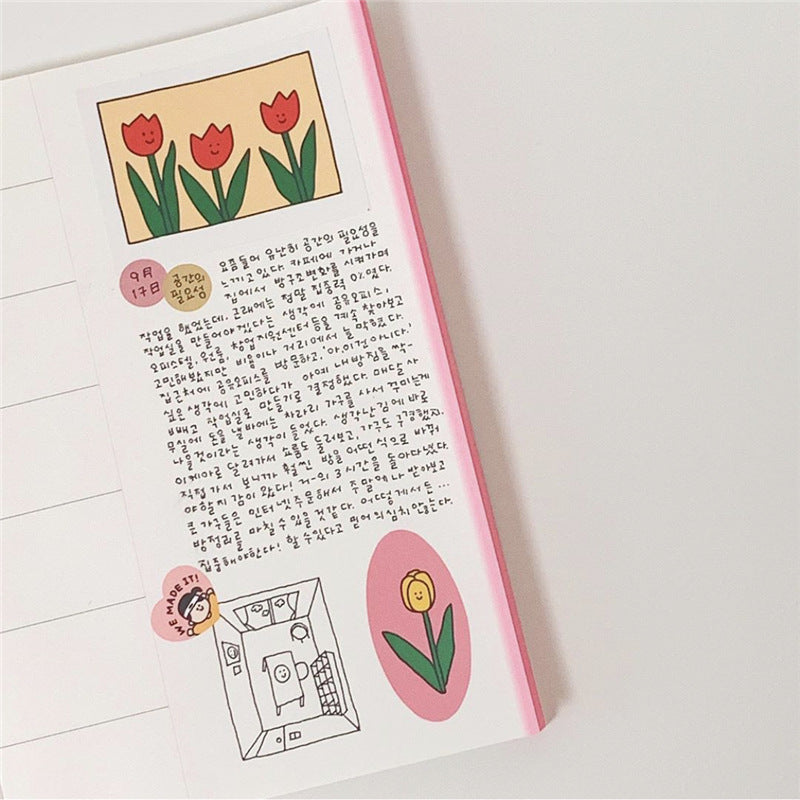 9月
17日
공간의
필요성
요즘들어 유난히 공간의 필요성을
느끼고 있다. 카페에 가거나
집에서 방구조변화를 시켜가며
작업을 했었는데, 근래에는 정말 집중력 0%였다.
작업실을 만들어야겠다는 생각에 공유오피스,
오피스텔, 원룸, 창업지원센터 등을 계속 찾아보고
고민해봤지만 비용이나 거리에서 늘 막혔다.
집근처에 공유오피스를 방문하고, '아, 이건 아니다.'
싶은 생각에 고민하다가 아예 내 방 짐을 싹-
비빼고 작업실로 만들기로 결정했다. 매달 사
무실에 돈을 낼바에는 차라리 가구를 사서 꾸미는게
나을것이라는 생각이 들었다. 생각난김에 바로
이케아로 달려가서 쇼룸도 둘러보고, 가구도 구경했지.
직접 가서 보니까 훨씬 방을 어떤 식으로 바꿔
야할지 감이 왔다! 거-의 3시간을 돌아다녔다.
큰가구들은 인터넷주문해서 주말에나 받아보고
방정리를 마칠 수 있을 것 같다. 어떻게서든...
집중해야한다! 할 수 있다고 믿어 의심치 않는다.
WE MADE IT!